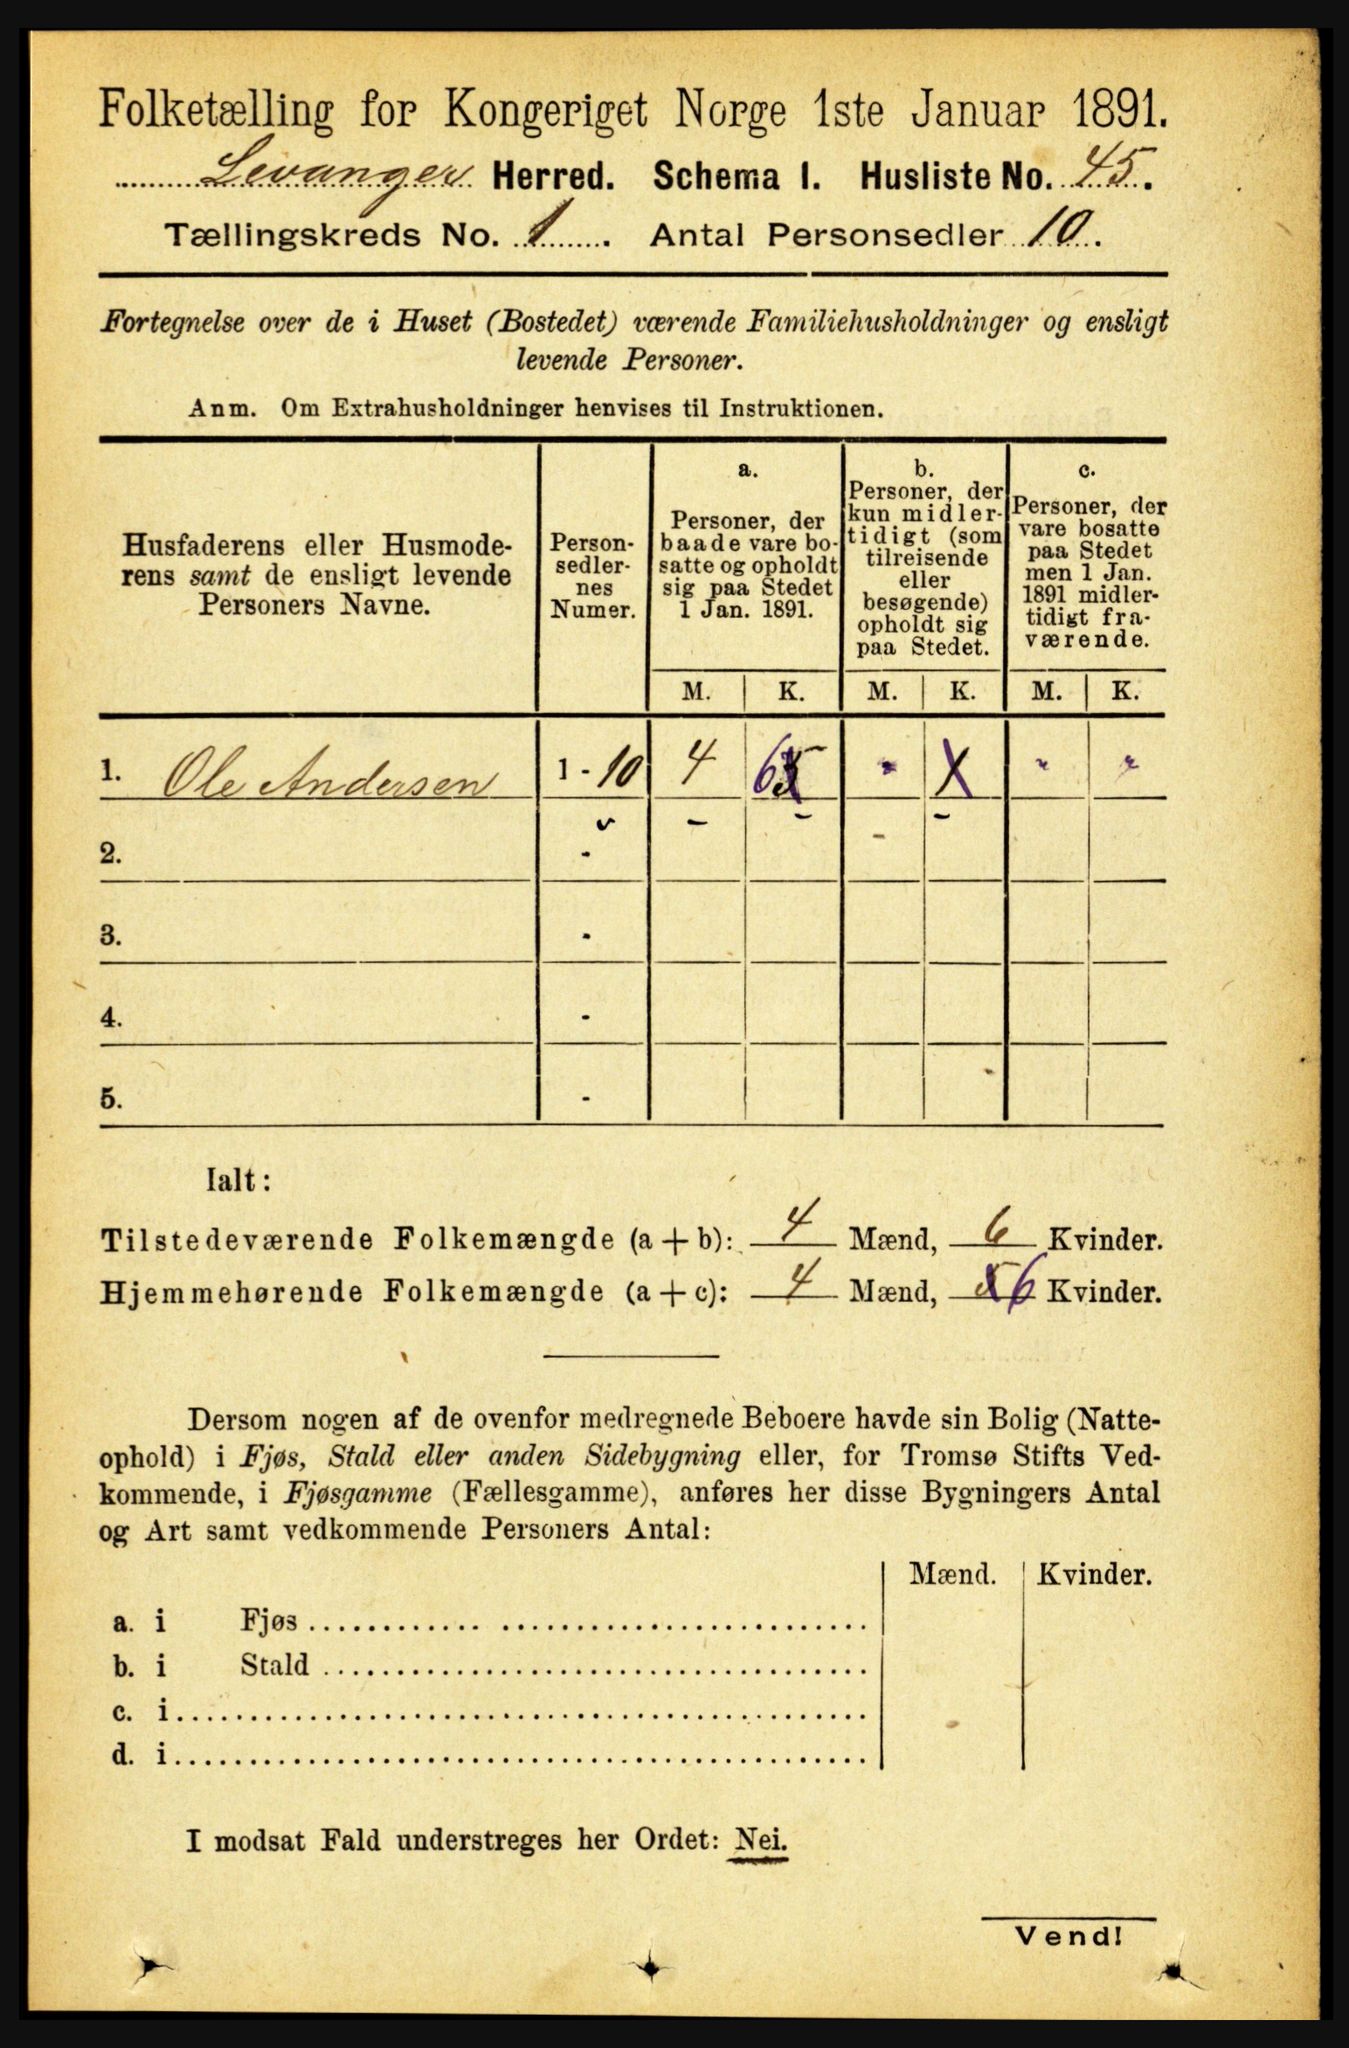 Folketælling for Kongeriget Norge 1ste Januar 1891.
Levanger Herred. Schema I. Husliste No. 45.
Tællingskreds No. 1. Antal Personsedler 10.
Fortegnelse over de i Huset (Bostedet) værende Familiehusholdninger og ensligt
levende Personer.
Anm. Om Extrahusholdninger henvises til Instruktionen.
Husfaderens eller Husmode-
rens samt de ensligt levende
Personers Navne.
Person-
sedler-
nes
Numer.
a.
Personer, der
baade vare bo-
satte og opholdt
sig paa Stedet
1 Jan. 1891.
b.
Personer, der
kun midler-
tidigt (som
tilreisende
eller
besøgende)
opholdt sig
paa Stedet.
c.
Personer, der
vare bosatte
paa Stedet
men 1 Jan.
1891 midler-
tidigt fra-
værende.
M. K. M. K. M. K.
1. Ole Andersen 1 - 10 4 6 5 " " "
2. -
3. -
4. -
5. -
Ialt:
Tilstedeværende Folkemængde (a + b): 4 Mænd, 6 Kvinder.
Hjemmehørende Folkemængde (a + c): 4 Mænd, 5 6 Kvinder.
Dersom nogen af de ovenfor medregnede Beboere havde sin Bolig (Natte-
ophold) i Fjøs, Stald eller anden Sidebygning eller, for Tromsø Stifts Ved-
kommende, i Fjøsgamme (Fællesgamme), anføres her disse Bygningers Antal
og Art samt vedkommende Personers Antal:
Mænd. Kvinder.
a. i Fjøs
b. i Stald
c. i
d. i
I modsat Fald understreges her Ordet: Nei.
Vend!